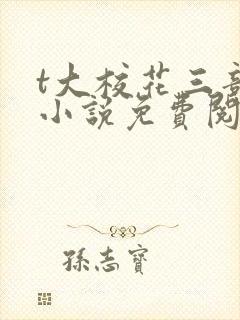 t大校花三部
小说免費閱
孫志寶